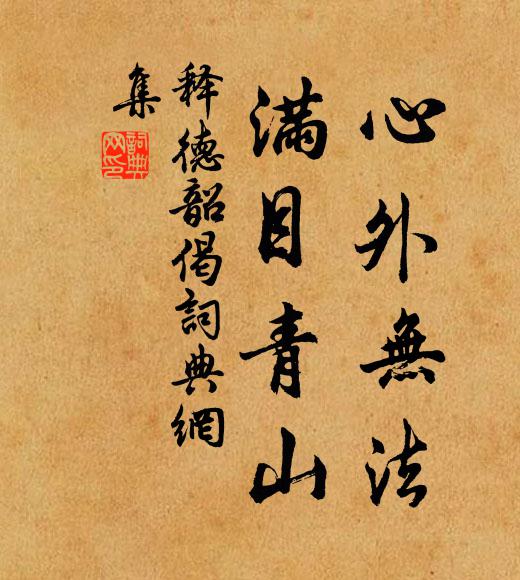 心外無法
滿目青山
释德韶偈詞典網
集
詞典
网印